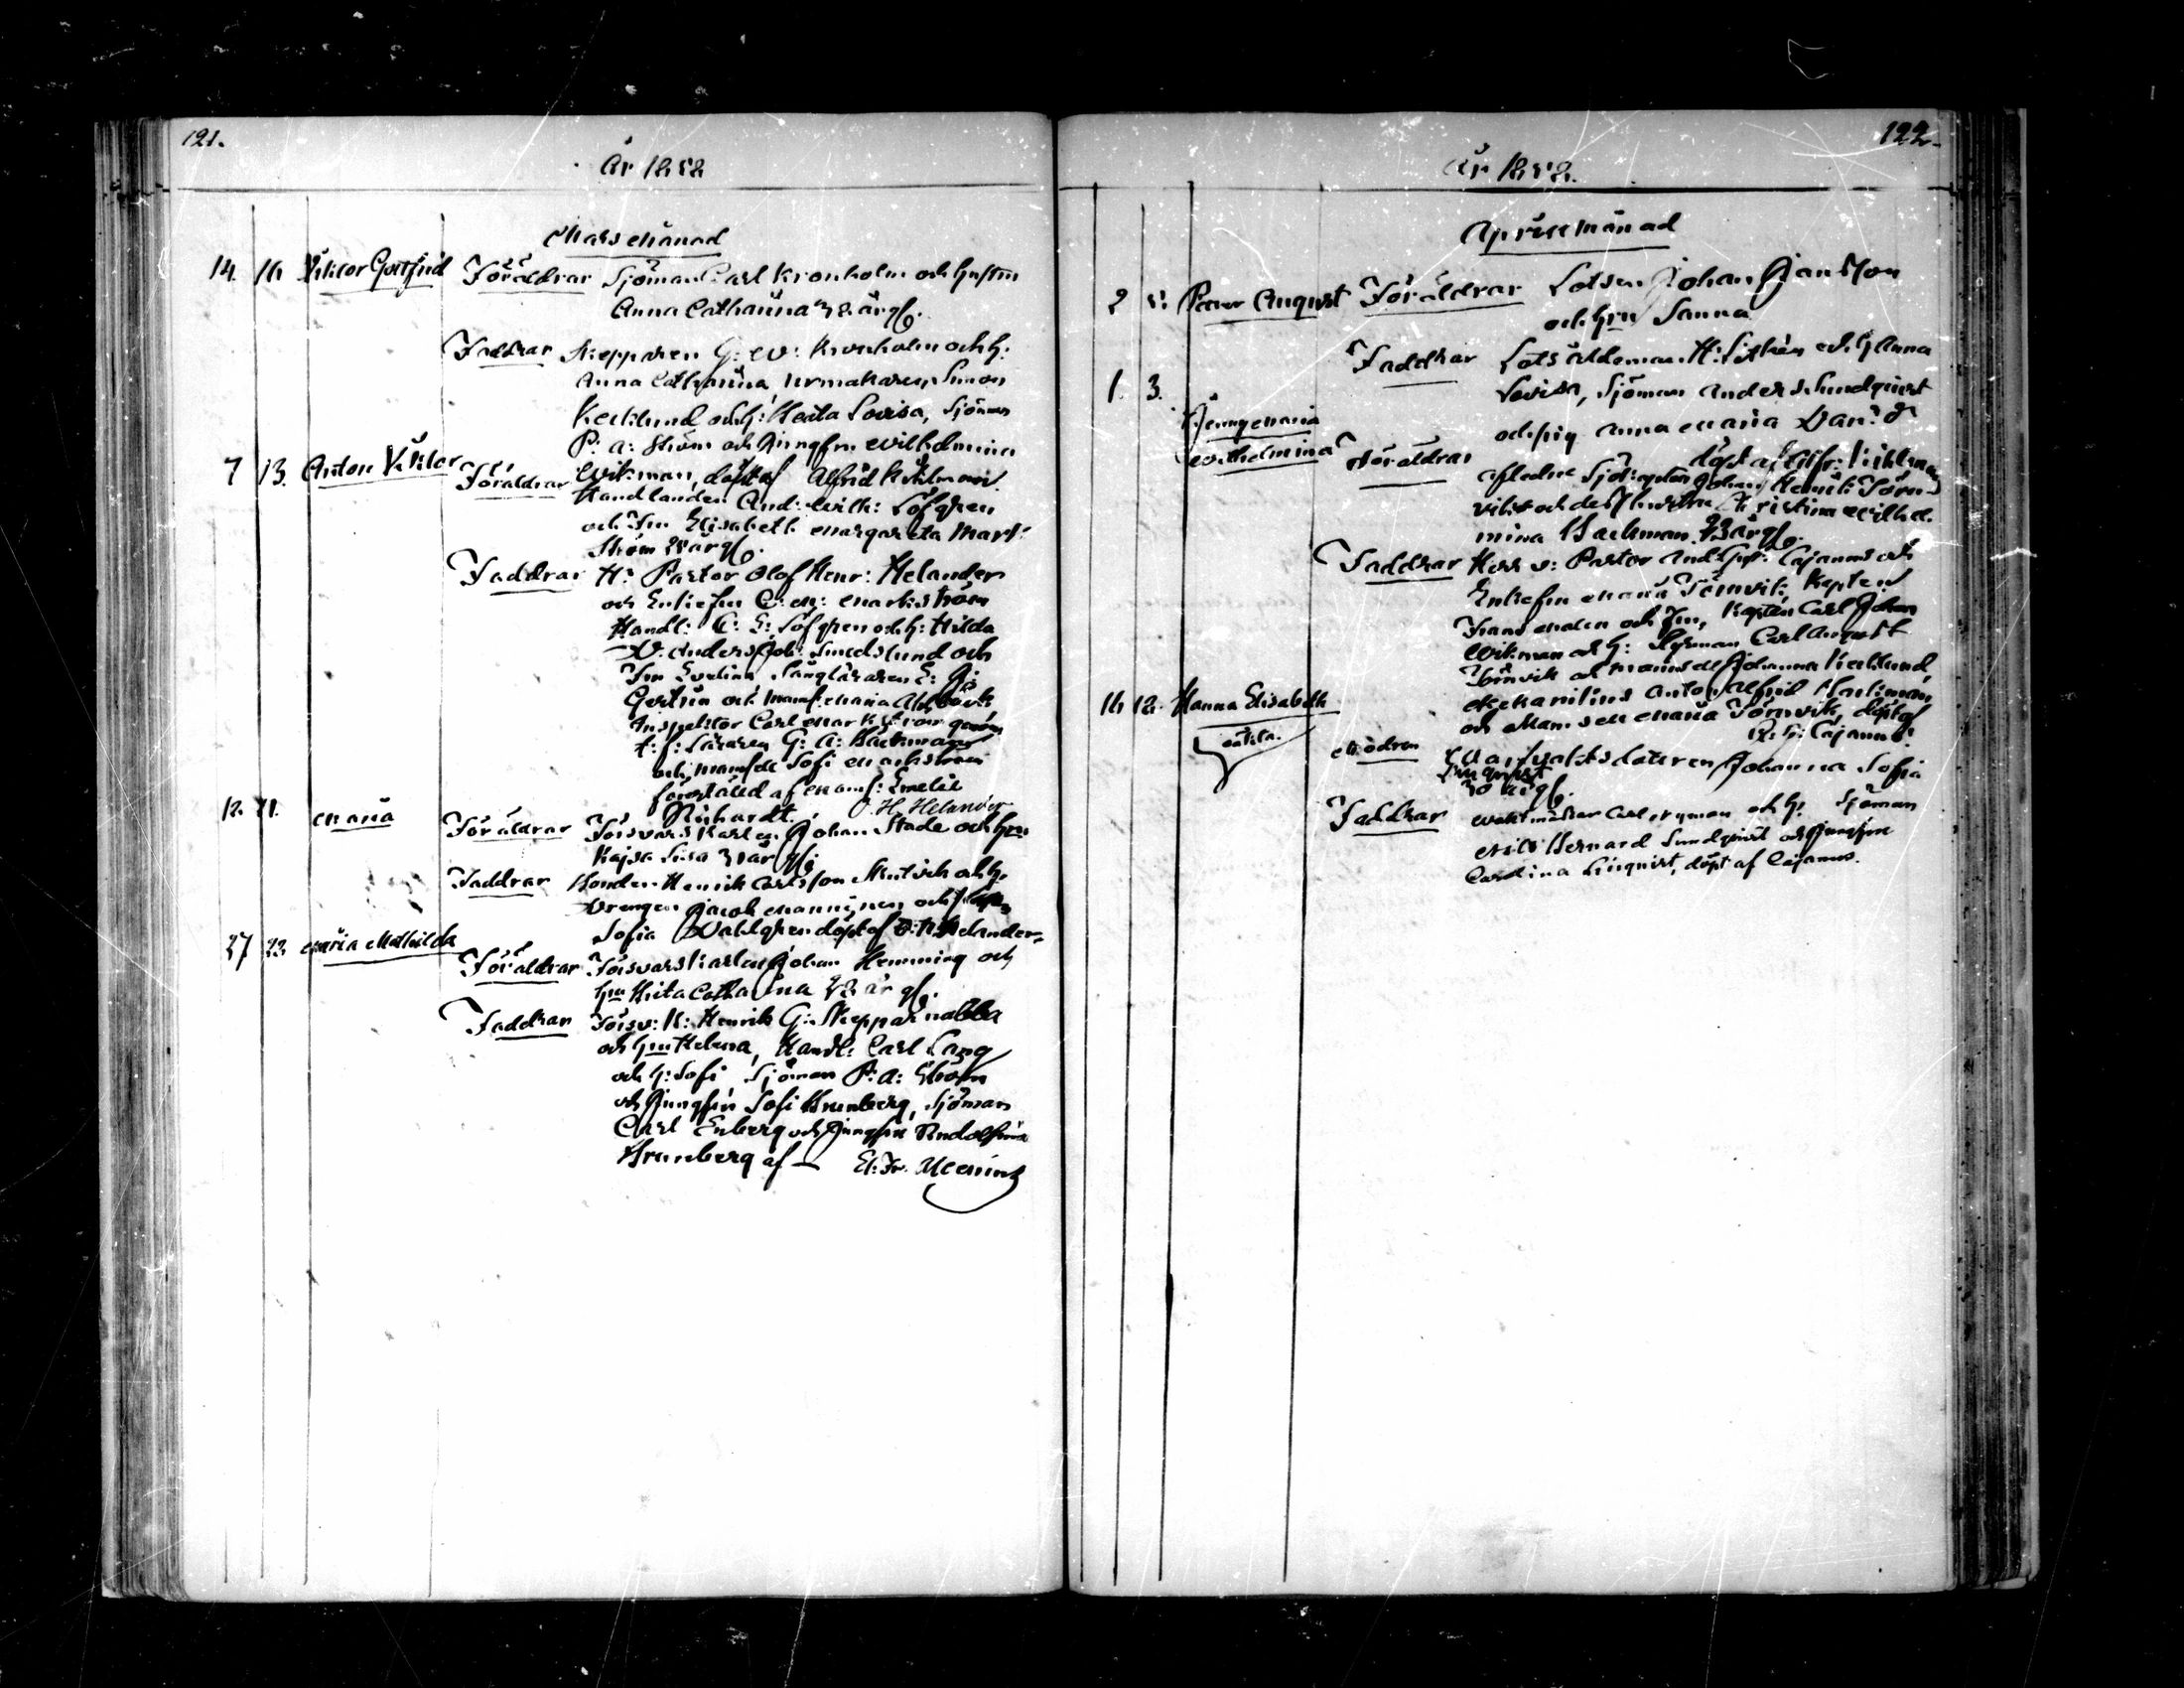 121.
År 1858
Mars Månad
14. 16. Viktor Gottfrid Föräldrar Sjöman Carl Kronholm och hustru
Anna Catharina 38 år gl.
Faddrar Skepparen G: W: Kronholm och h:
Anna Catharina, urmakaren Simon
Kecklund och h: Lovisa, Sjöman
P: A: Ström och Jungfru Wilhelmina
Wikman, döpt af Alfrid Kihlman.
7 13. Anton Viktor Föräldrar
Handlanden And: Wilh: Löfgren
och Fru Elisabeth Margareta Mark-
ström år gl.
Faddrar H: Pastor Olof Henr: Helander
och Enkefru C: M: Markström
Handl: C: E: Löfgren och h: Hilda
Anders Joh: Smedslund och
Fru Evelina, Sångläraren E: G:
och Mamsell Maria
Inspektor Carl Markström genom
t: f: Läraren G: A: Backman
och Mamsell Sofi Markström
företräded af Mams: Emelie
Richardt. O. H. Helander
12. 21. Maria Föräldrar Försvarskarlen Johan Stade och hru
Kajsa Lisa år gl:
Faddrar Bonden Henrik Carlsson och h.
Drengen Jacob Manninen och
Sofia Dahlgren döpt af O: H: Helander
27 23 Maria Mathilda
Föräldrar Försvarskarlen Johan Hemming och
hru Catharina 38 år gl.
Faddrar Försv: K: Henrik G: Skepparnabba
och hru Helena, Handl: Carl Lång
och h: Sofi, Sjöman P: A: Ström
och Jungfru Sofi Brunberg, Sjöman
Carl Enberg och Jungfru Rudolfina
Brunberg af — El: Fr.
122.
År 1858.
April Månad
2 5. Petter August Föräldrar Lotsen Johan Jansson
och hru Sanna
Faddrar Lots Ålderman H: och h Anna
Lovisa, Sjöman Anders Lundqvist
och pig Anna Maria Dan: dr
döpt af Alfr: Kihlman
1. 3.
Jenny Maria
Wilhelmina Föräldrar
aflidne Sjökapten Johan Henrik Törn-
vik och dess hustru Christina Wilhel-
mina Backman 33 år gl.
Faddrar Herr v: Pastor And: Cajanus och
Enkefru Maria Törnvik, Kapten
Frans Malen och Fru, Kapten Carl Johan
Wikman och h: Styrman Carl August
Törnvik och Mamsell Johanna Kecklund,
Mekanikus Anton Alfrid Backman,
och Mamsell Maria Törnvik, döpt af
Cajanus.
16. 18. Hanna Elisabeth
oäkta.
Modren Johanna Sofia
30 år gl.
Faddrar Waktmästar Carl Nyman och h: Sjöman
Nils Bernard Lundqvist och Jungfru
Carolina Linqvist, döpt af Cajanus.